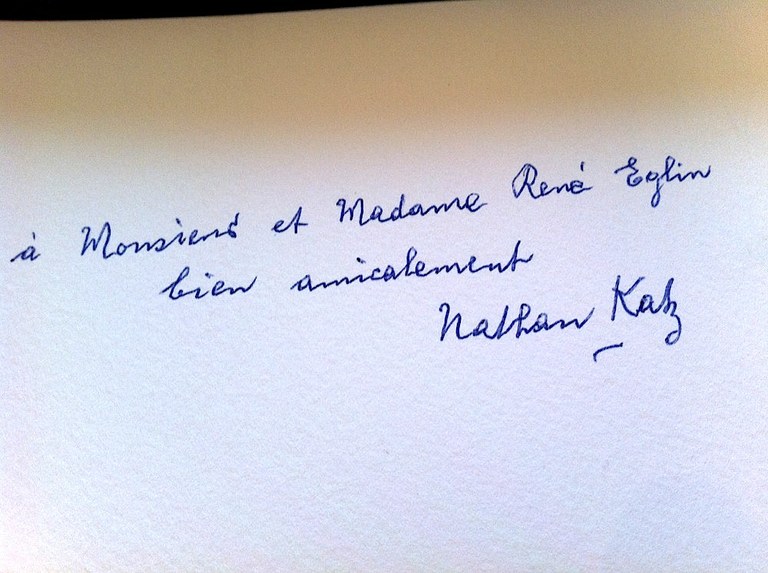 à Monsieur et Madame René Eglin
bien amicalement
Nathan Katz